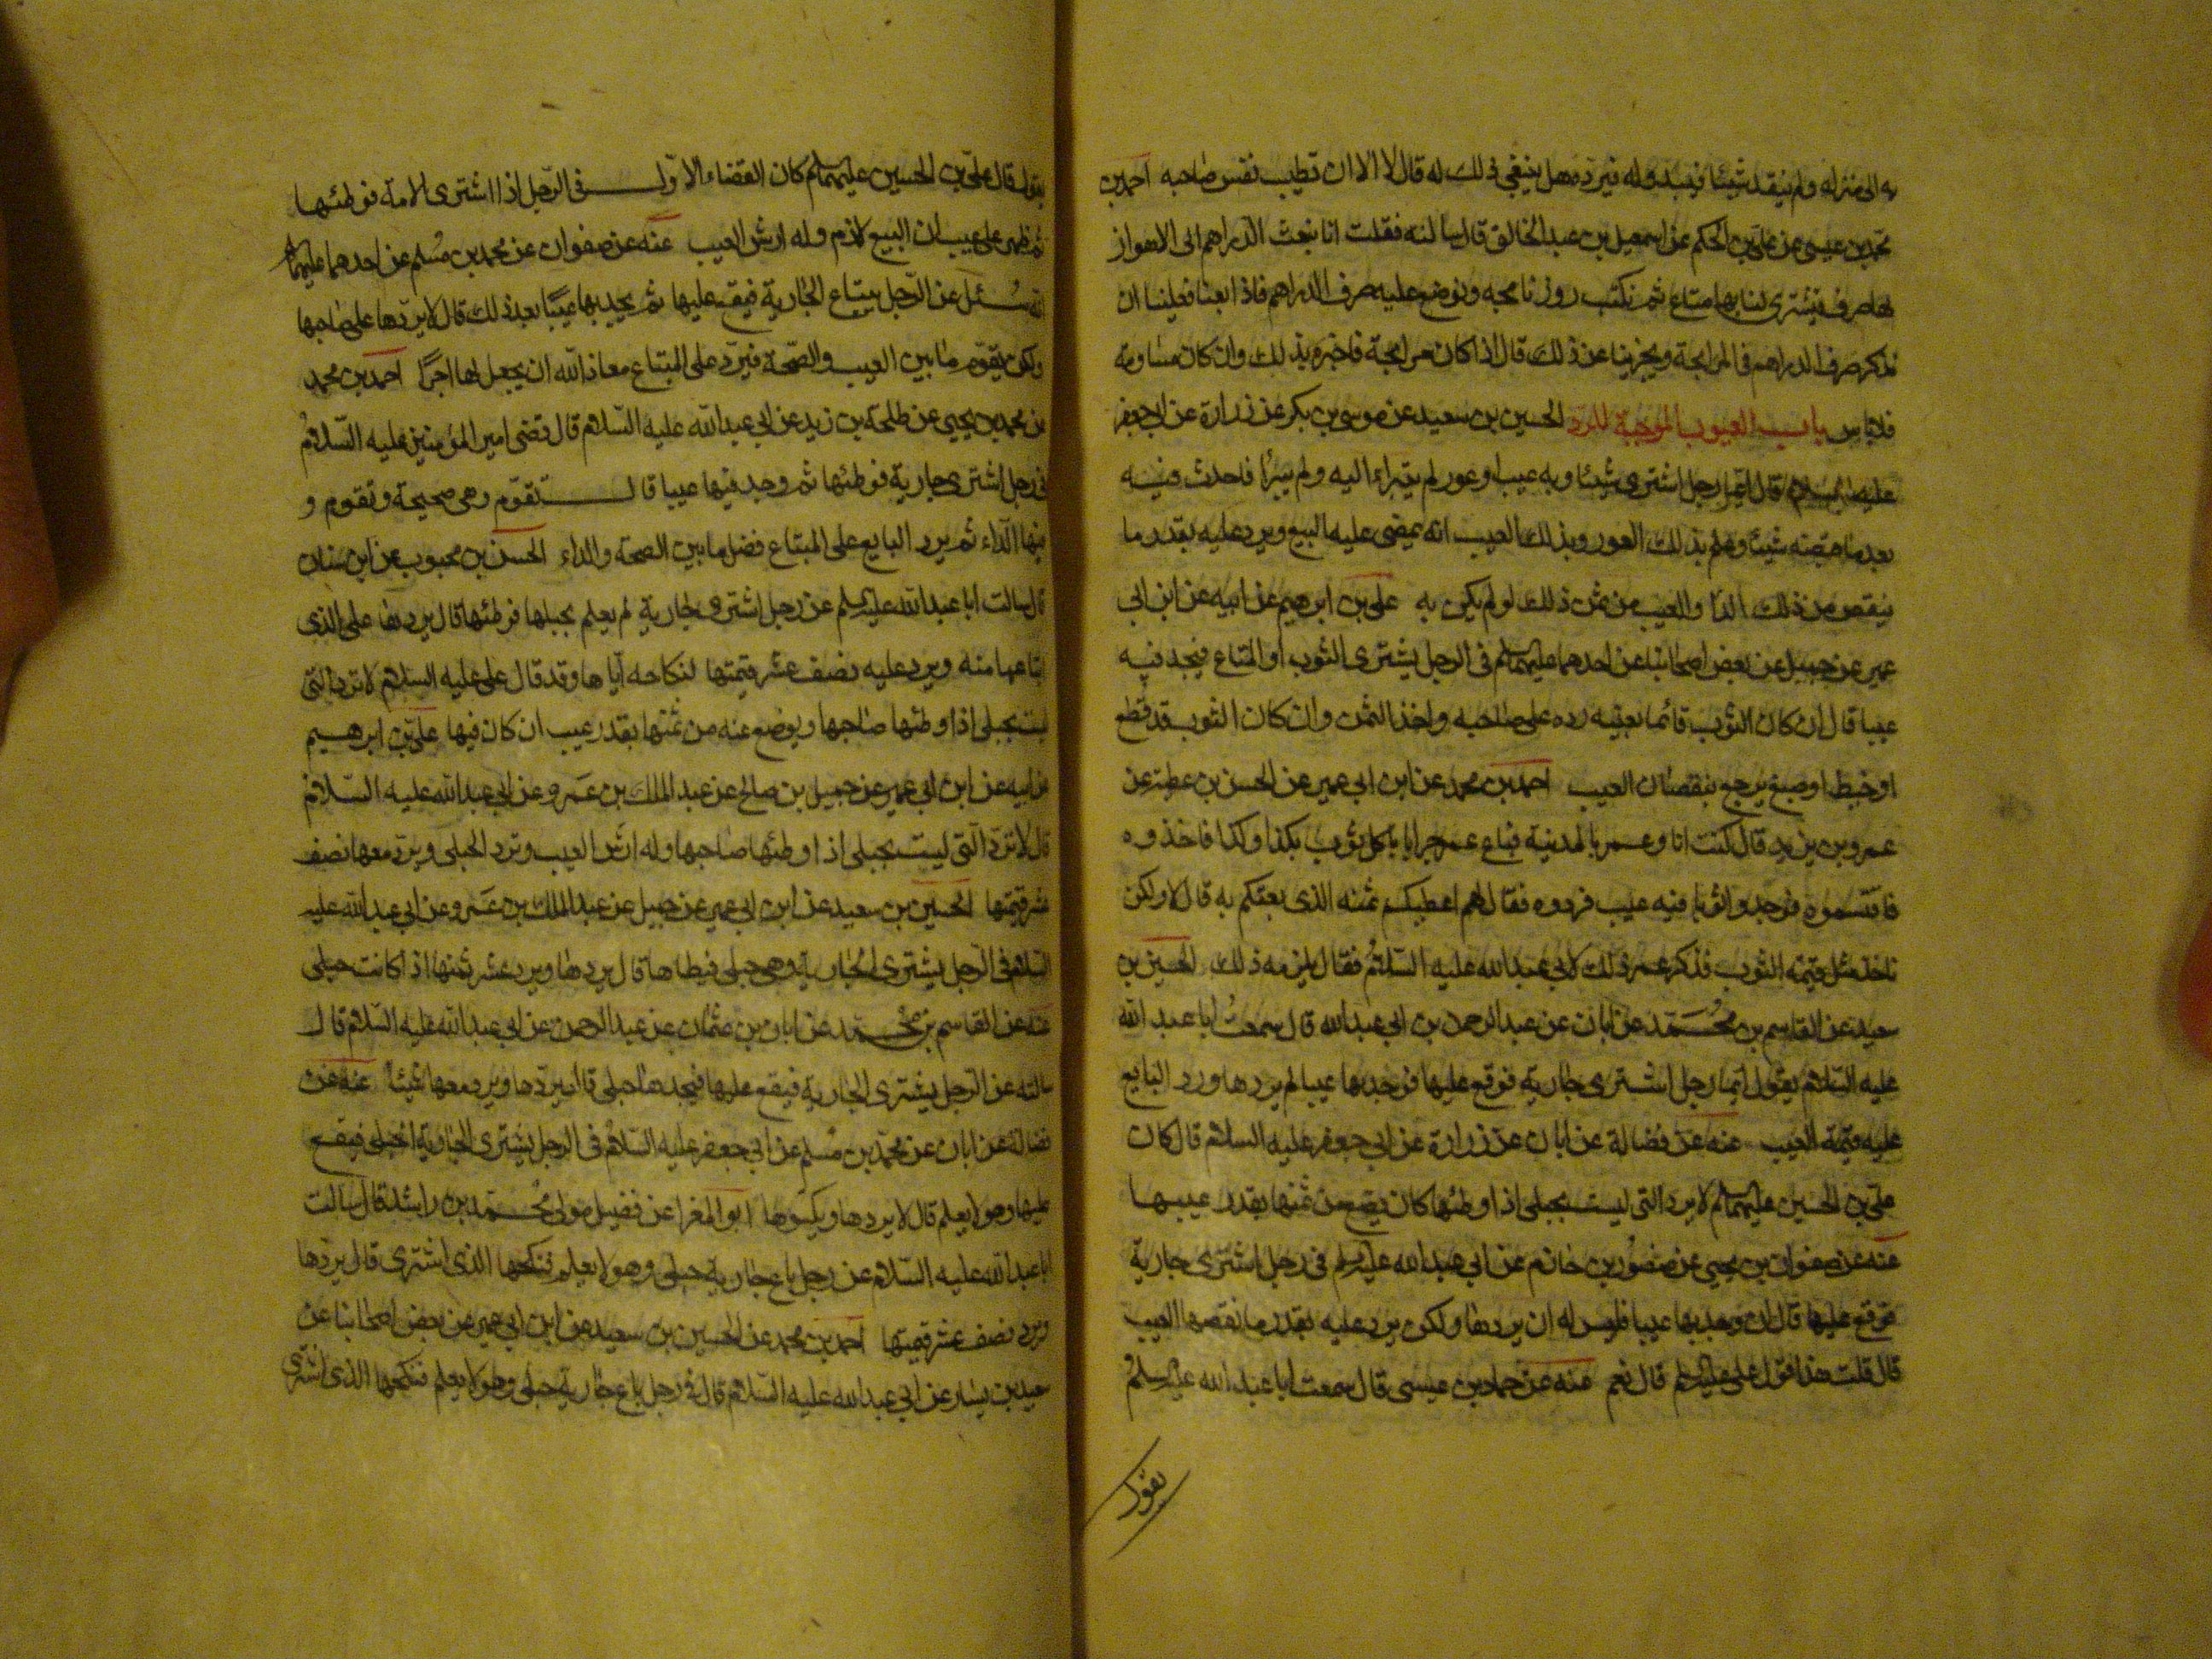 به الى منزله ولم ينقد شيئا فيبدو له فيرد هل ينبغى ذلك له قال لا الا ان تطيب نفس صاحبه احمد بن
محمد بن عيسى عن على بن الحكم عن اسمعيل بن عبد الخالق قال سالته فقلت انا نبعث الدراهم الى الاهواز
لها صرف فيشترى لنا بها متاع ثم نكتب روزنامجه ونوضع عليه صرف الدراهم فاذا بعنا فعلينا ان
نذكر صرف الدراهم فى المرابحة ويجزينا عن ذلك قال اذا كان مرابحة فاخبره بذلك وان كان مساومة
فلا باس باب العيوب الموجبة للرد الحسين بن سعيد عن موسى بن بكر عن زرارة عن ابى جعفر
عليه السلام قال ايما رجل اشترى شيئا وبه عيب او عور لم يتبراء اليه ولم يبرأ فاحدث فيه
بعد ما قبضه شيئا وعلم بذلك العور وبذلك العيب انه يمضى عليه البيع ويرد عليه بقدر ما
ينقص من ذلك الدا والعيب من ثمن ذلك لو لم يكن به على بن ابرهيم عن ابيه عن ابن ابى
عمير عن جميل عن بعض اصحابنا عن احدهما عليهما السلم فى الرجل يشترى الثوب او المتاع فيجد فيه
عيبا قال ان كان الثوب قائما بعينه رده على صاحبه واخذ الثمن وان كان الثوب قد قطع
او خيط او صبغ يرجع بنقصان العيب احمد بن محمد عن ابن ابى عمير عن الحسن بن عطية عن
عمرو بن يزيد قال كنت انا وعمر بالمدينة فباع عمر جرابا كل ثوب بكذا وكذا فاخذوه
فاقتسموه فوجدوا ثوبا فيه عيب فردوه فقال لهم اعطيكم ثمنه الذى بعتكم به قال لا ولكن
ناخذ مثل قيمة الثوب فذكر عمر ذلك لابى عبد الله عليه السلام فقال يلزمه ذلك الحسين بن
سعيد عن القاسم بن محمد عن ابان عن عبد الرحمن بن ابى عبد الله قال سمعت ابا عبد الله
عليه السلام يقول ايما رجل اشترى جارية فوقع عليها فوجد بها عيبا لم يردها ورد البايع
عليه قيمة العيب عنه عن فضالة عن ابان عن زرارة عن ابى جعفر عليه السلام قال كان
على بن الحسين عليهما السلم لا يرد التى ليست بحبلى اذا وطئها كان يضع من ثمنها بقدر عيبها
عنه عن صفوان بن يحيى عن منصور بن حازم عن ابى عبد الله عليه السلم فى رجل اشترى جارية
فوقع عليها قال ان وجد بها عيبا فليس له ان يردها ولكن يرد عليه بقدر ما نقصها العيب
قال قلت هذا قول على عليه السلم قال نعم عنه عن حماد بن عيسى قال سمعت ابا عبد الله عليه السلم
يقول
يقول قال على بن الحسين عليهما السلم كان القضاء الاول فى الرجل اذا اشترى الامة فوطئها
ثم ظهر على عيب ان البيع لازم وله ارش العيب عنه عن صفوان عن محمد بن مسلم عن احدهما عليهما السلم
انه سئل عن الرجل يبتاع الجارية فيقع عليها ثم يجد بها عيبا بعد ذلك قال لا يردها على صاحبها
ولكن يقوم ما بين العيب والصحة فيرد على المبتاع معاذ الله ان يجعل لها اجرا احمد بن محمد
عن محمد بن يحيى عن طلحة بن زيد عن ابى عبد الله عليه السلام قال قضى امير المؤمنين عليه السلام
فى رجل اشترى جارية فوطئها ثم وجد فيها عيبا قال تقوم وهى صحيحة وتقوم و
بها الداء ثم يرد البايع على المبتاع فضل ما بين الصحة والداء الحسن بن محبوب عن ابن سنان
قال سالت ابا عبد الله عليه السلم عن رجل اشترى جارية لم يعلم بحبلها فوطئها قال يردها على الذى
ابتاعها منه ويرد عليه نصف عشر قيمتها لنكاحه اياها وقد قال على عليه السلام لا ترد التى
ليست بحبلى اذا وطئها صاحبها ويوضع عنه من ثمنها بقدر عيب ان كان فيها على بن ابرهيم
عن ابيه عن ابن ابى عمير عن جميل بن صالح عن عبد الملك بن عمرو عن ابى عبد الله عليه السلام
قال لا ترد التى ليست بحبلى اذا وطئها صاحبها وله ارش العيب وترد الحبلى ويرد معها نصف
عشر قيمتها الحسين بن سعيد عن ابن ابى عمير عن جميل عن عبد الملك بن عمرو عن ابى عبد الله عليه
السلام فى الرجل يشترى الجارية وهى حبلى فيطاها قال يردها ويرد عشر ثمنها اذا كانت حبلى
عنه عن القاسم بن محمد عن ابان بن عثمان عن عبد الرحمن عن ابى عبد الله عليه السلام قال
سالته عن الرجل يشترى الجارية فيقع عليها فيجدها حبلى قال يردها ويرد معها شيئا عنه عن
فضالة عن ابان عن محمد بن مسلم عن ابى جعفر عليه السلام فى الرجل يشترى الجارية الحبلى فيقع
عليها وهو لا يعلم قال لا يردها ويكسوها ابو المغرا عن فضيل مولى محمد بن راشد قال سالت
ابا عبد الله عليه السلام عن رجل باع جارية حبلى وهو لا يعلم فنكحها الذى اشترى قال يردها
ويرد نصف عشر قيمتها احمد بن محمد عن الحسين بن سعيد عن ابن ابى عمير عن بعض اصحابنا عن
سعيد بن يسار عن ابى عبد الله عليه السلام قال فى رجل باع جارية حبلى وهو لا يعلم فنكحها الذى اشترى